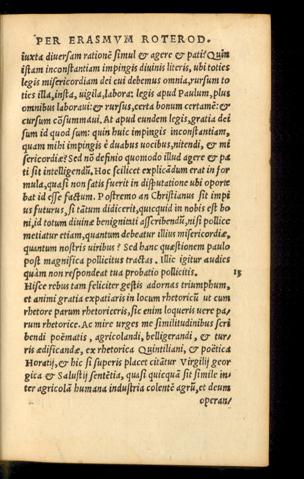 PER ERASMVM ROTEROD.
iuxta diuersam rationẽ simul & agere & pati? Quin
istam inconstantiam impingis diuinis literis, ubi toties
legis misericordiam dei cui debemus omnia, rursum to
ties illa, insta, uigila, labora: legis apud Paulum, plus
omnibus laboraui: & rursus, certa bonum certamẽ: &
cursum cõsummaui. At apud eundem legis, gratia dei
sum id quod sum: quin huic impingis inconstantiam,
quam mihi impingis è duabus uocibus, nitendi, & mi
sericordiæ? Sed nõ definio quomodo illud agere & pa
ti sit intelligendũ. Hoc scilicet explicãdum erat in for
mula, quasi non satis fuerit in disputatione ubi oporte
bat id esse factum. Postremo an Christianus sit impi
us futurus, si tãtum didicerit, quicquid in nobis est bo
ni, id totum diuinæ benignitati asscribendũ, nisi pollice
metiatur etiam, quantum debeatur illius misericordiæ,
quantum nostris uiribus? Sed hanc quæstionem paulo
post magnifica pollicitus tractas. Illic igitur audies
quàm non respondeat tua probatio pollicitis. 13
Hisce rebus tam feliciter gestis adornas triumphum,
et animi gratia expatiaris in locum rhetoricũ ut cum
rhetore parum rhetoriceris, sic enim loqueris uere pa,
rum rhetorice. Ac mire urges me similitudinibus scri
bendi poëmatis, agricolandi, belligerandi, & tur
ris ædificandæ, ex rhetorica Quintiliani, & poëtica
Horatij, & hic si superis placet citãtur Virgilij geor
gica & Salustij sentẽtia, quasi quicquã sit simile in,
ter agricolã humana industria colentẽ agrũ, et deum
operan,